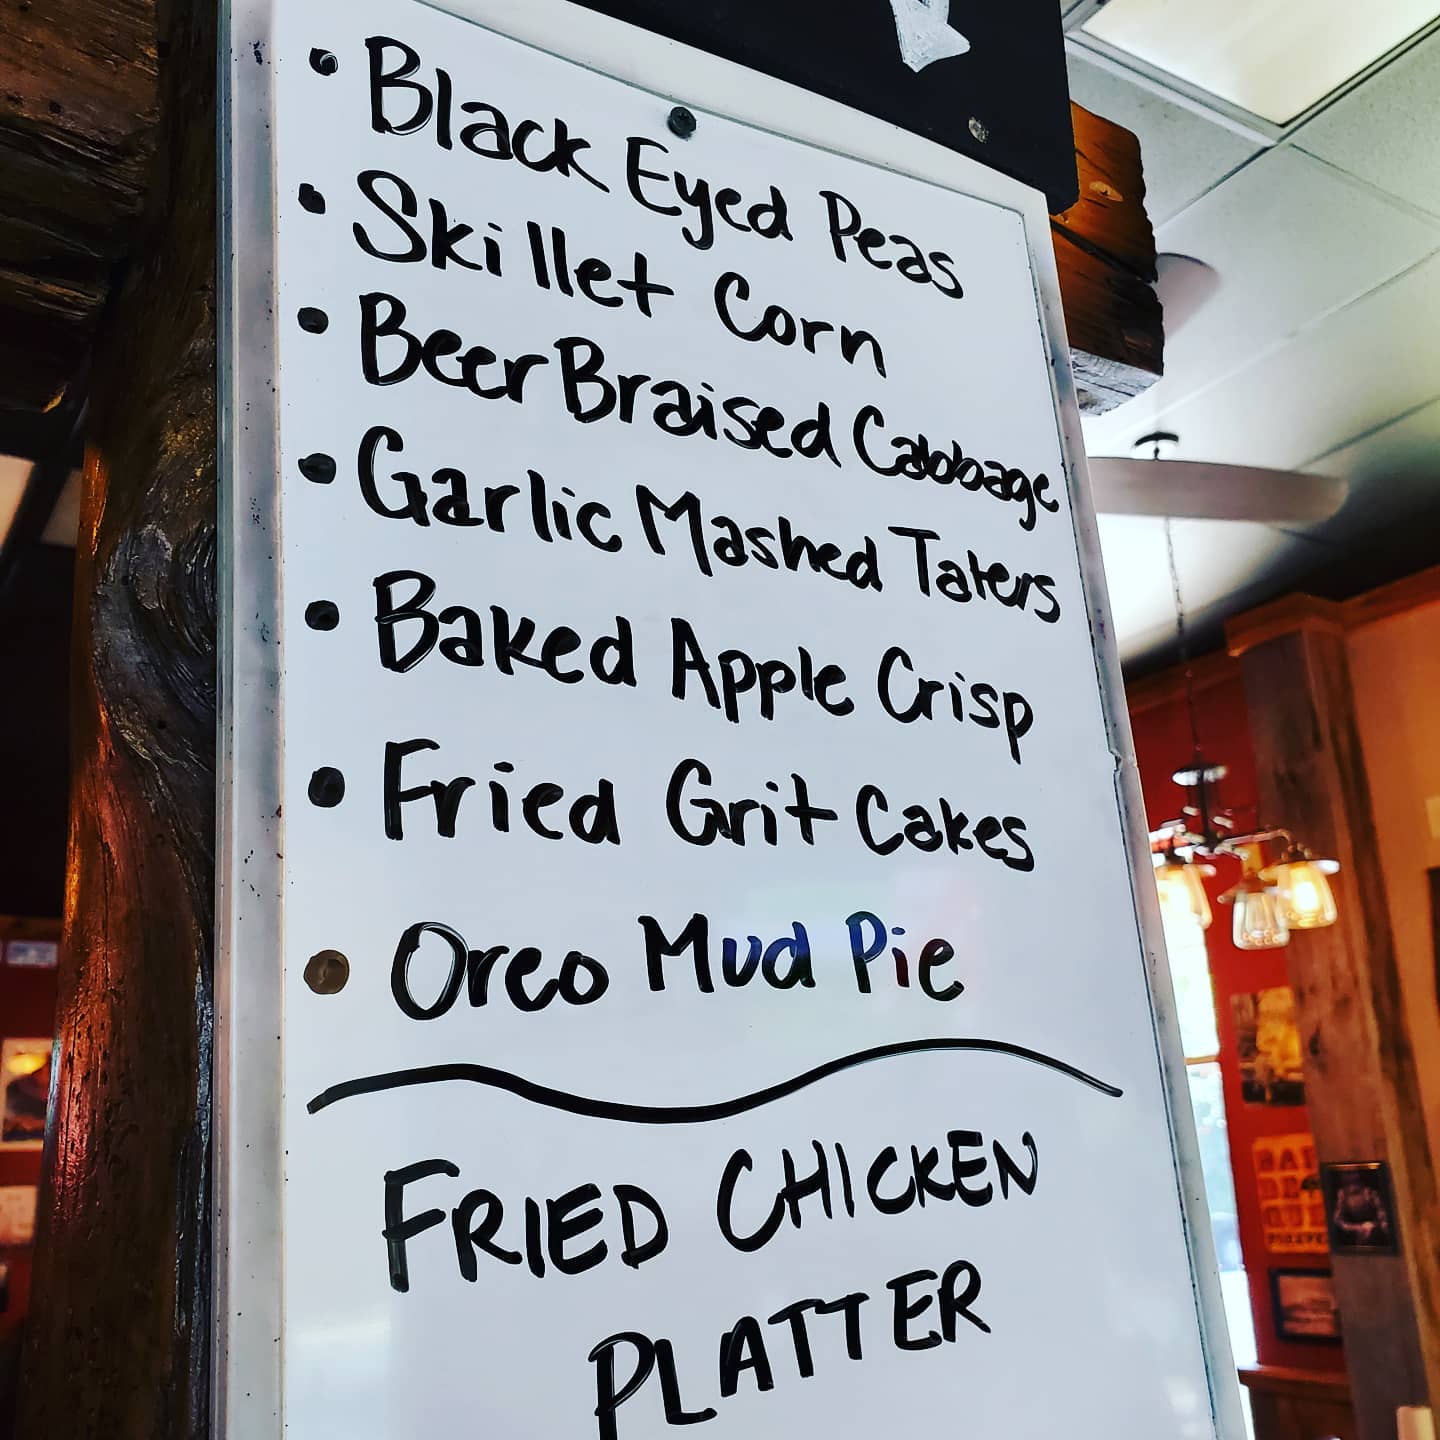 • Black Eyed Peas
• Skillet Corn
• Beer Braised Cabbage
• Garlic Mashed Taters
• Baked Apple Crisp
• Fried Grit Cakes
• Oreo Mud Pie
FRIED CHICKEN
PLATTER